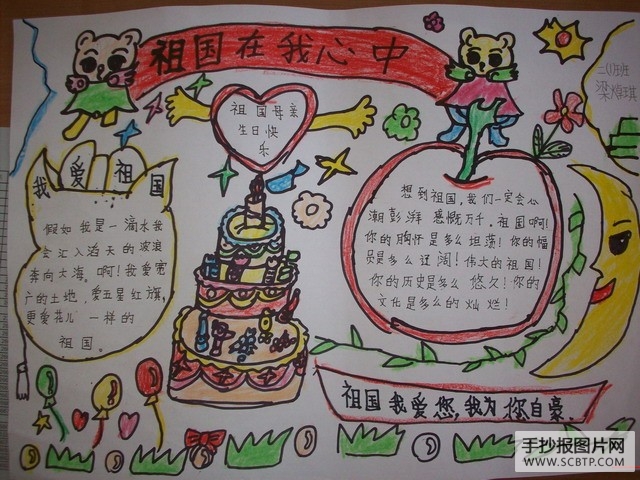 祖国在我心中
三(1)班
梁煌琪
祖国母亲
生日快
乐
我爱祖国
假如我是一滴水我
会汇入滔天的波浪
奔向大海。啊!我爱宽
广的土地,爱五星红旗,
更爱花儿一样的
祖国。
想到祖国,我们一定会心
潮彭湃 感慨万千。祖国啊!
你的胸怀是多么坦荡!你的幅
员是多么辽阔!伟大的祖国!
你的历史是多么悠久!你的
文化是多么的灿烂!
祖国我爱您,我为您自豪.
手抄报图片网
WWW.SCBTP.COM